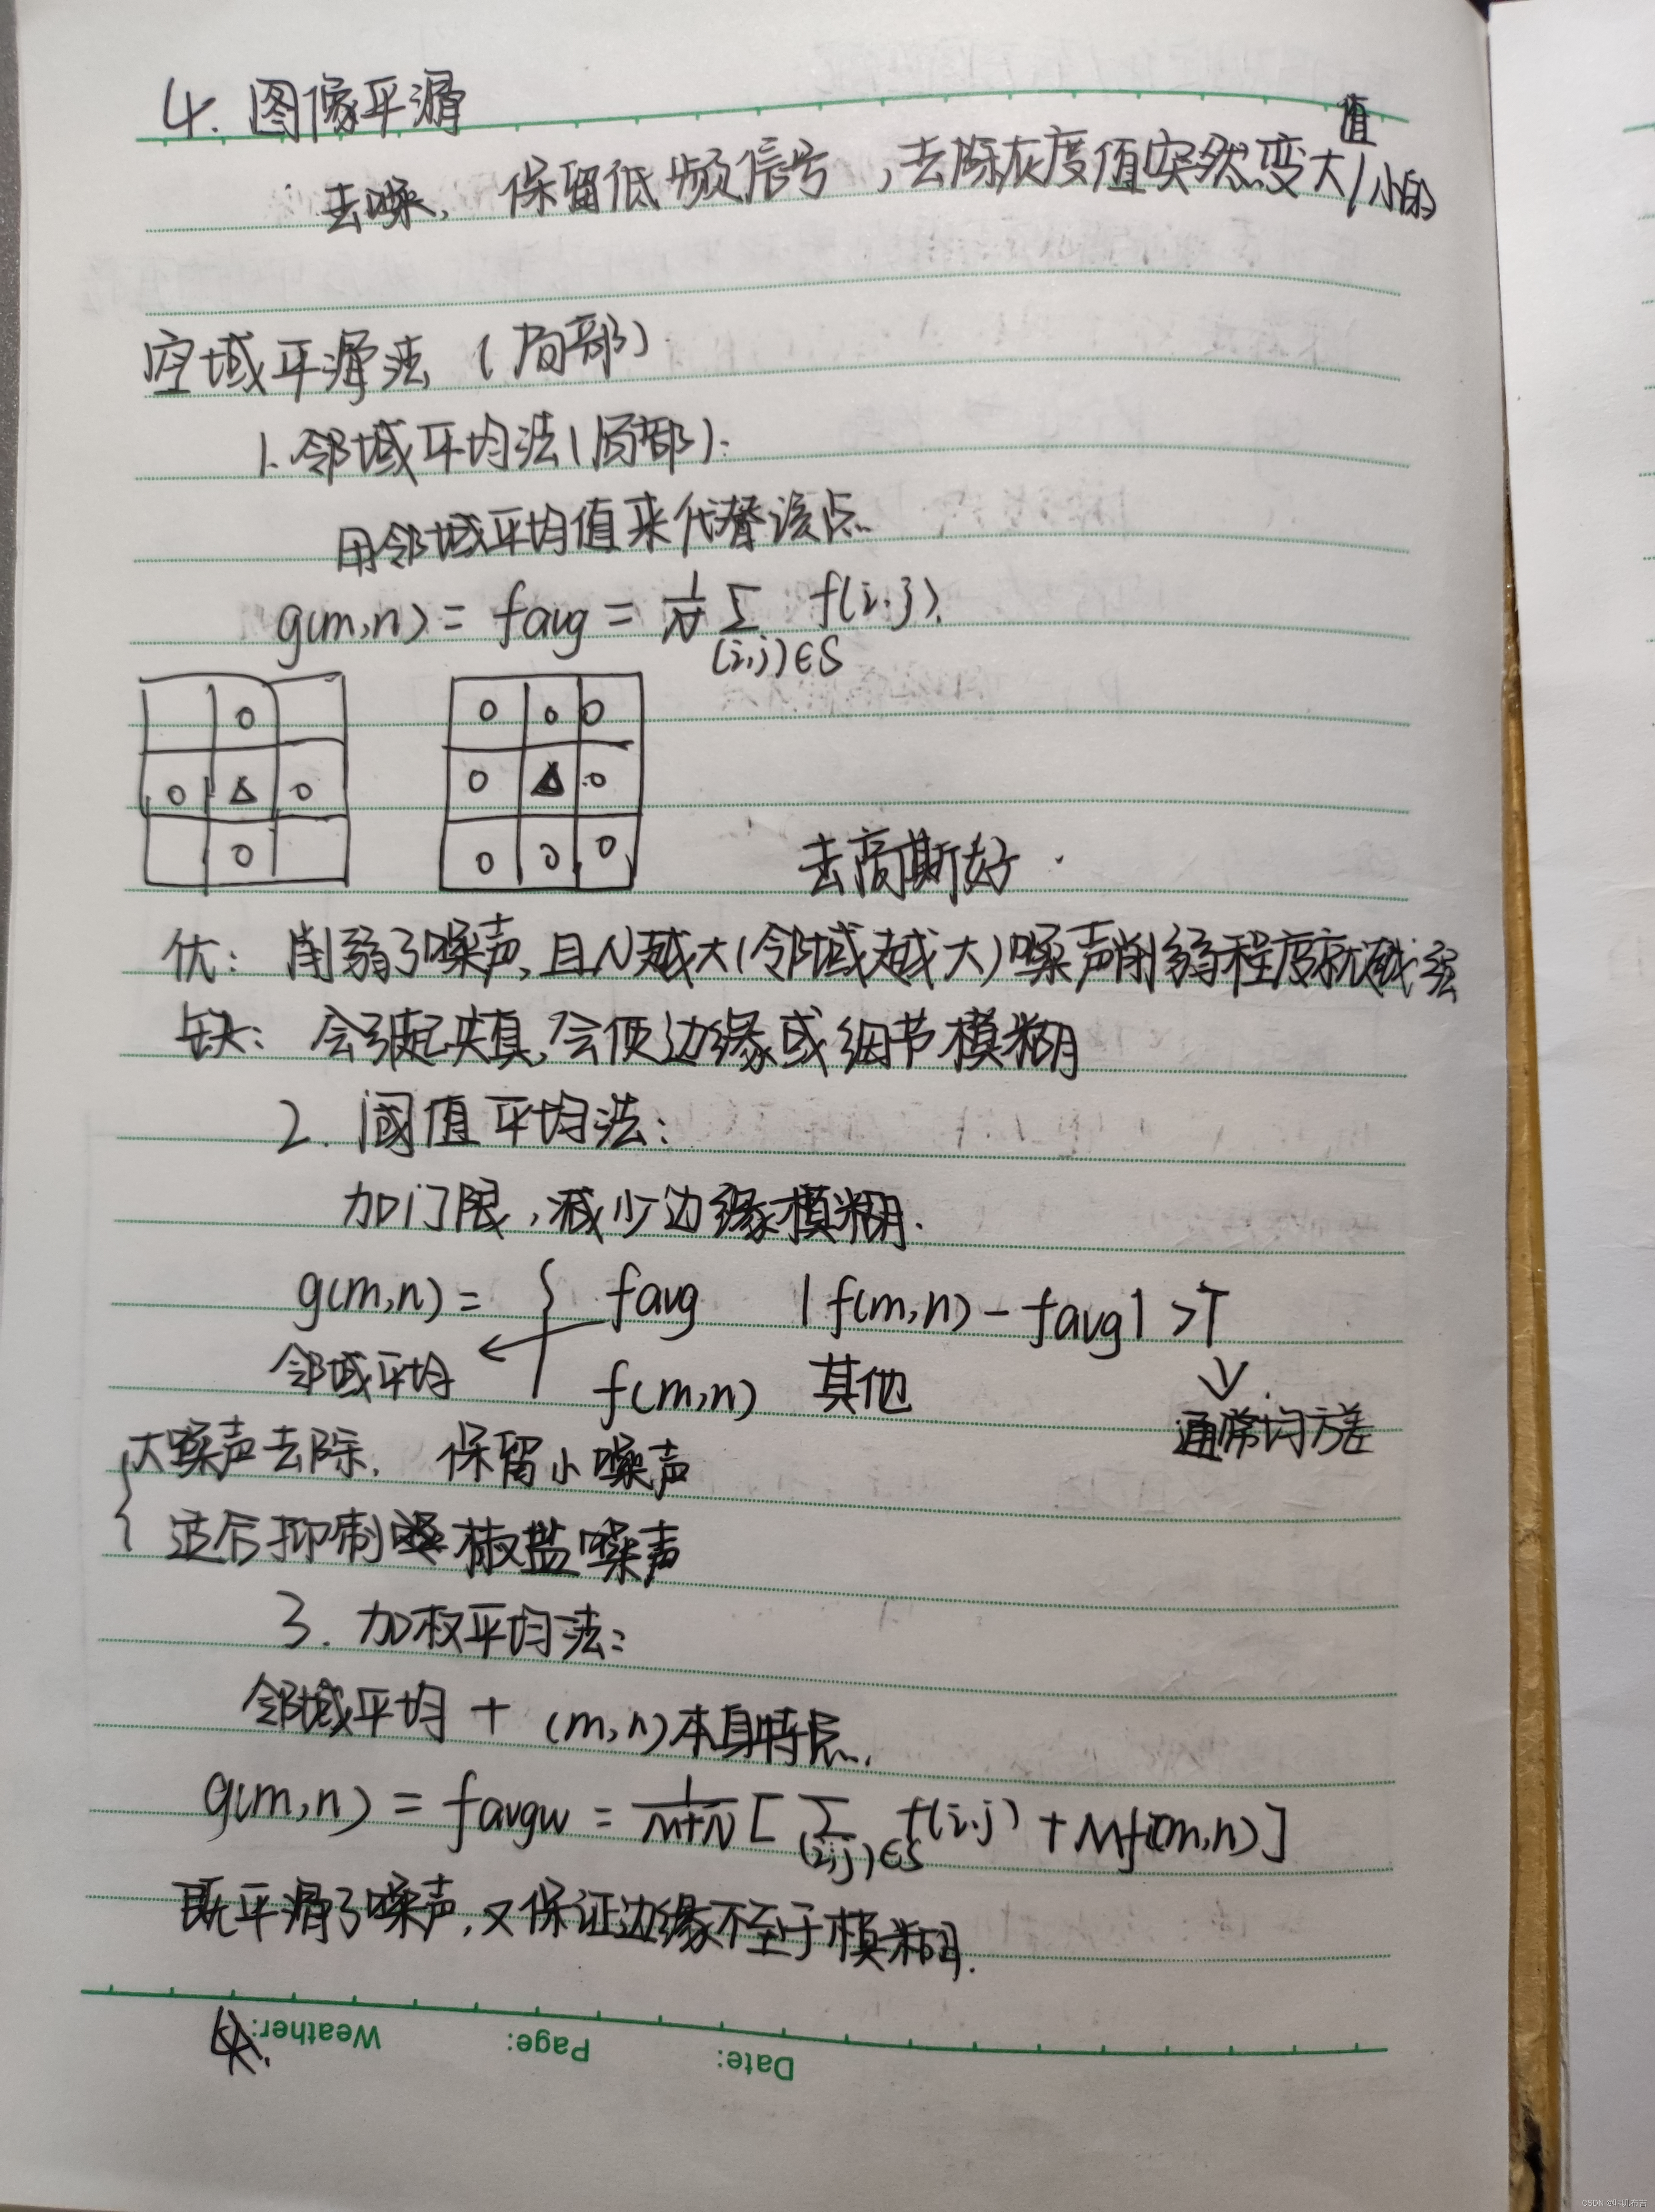 4. 图像平滑
去噪，保留低频信号，去除灰度值突然变大/小的
值
空域平滑法（局部）
1.邻域平均法（局部）：
用邻域平均值来代替该点
g(m,n) = favg = 1/N Σ f(i,j)
(i,j)∈S
○
○ △ ○
○
○ ○ ○
○ △ ○
○ ○ ○
去高斯好
优：削弱了噪声，且N越大（邻域越大）噪声削弱程度就越强
缺：会引起失真，会使边缘或细节模糊
2. 阈值平均法：
加门限，减少边缘模糊.
g(m,n) = { favg |f(m,n) - favg| > T
邻域平均 ← f(m,n) 其他
通常均方差
大噪声去除，保留小噪声
适合抑制椒盐噪声
3. 加权平均法：
邻域平均 + (m,n)本身特点.
g(m,n) = favgw = 1/(M+N) [ Σ f(i,j) + Mf(m,n) ]
(i,j)∈S
既平滑了噪声，又保证边缘不至于模糊.
Weather:
Page:
Date: